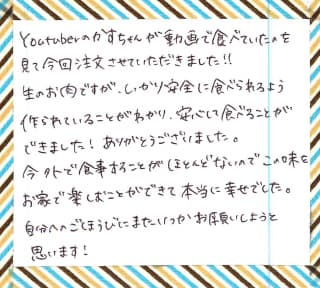 Youtuberのかすちゃんが動画で食べていたのを
見て今回注文させていただきました!!
生のお肉ですが、しっかり安全に食べられるよう
作られていることがわかり、安心して食べることが
できました！ありがとうございました。
今外で食事することがほとんどないのでこの味を
お家で楽しむことができて本当に幸せでした。
自分へのごほうびにまたいつかお願いしようと
思います！